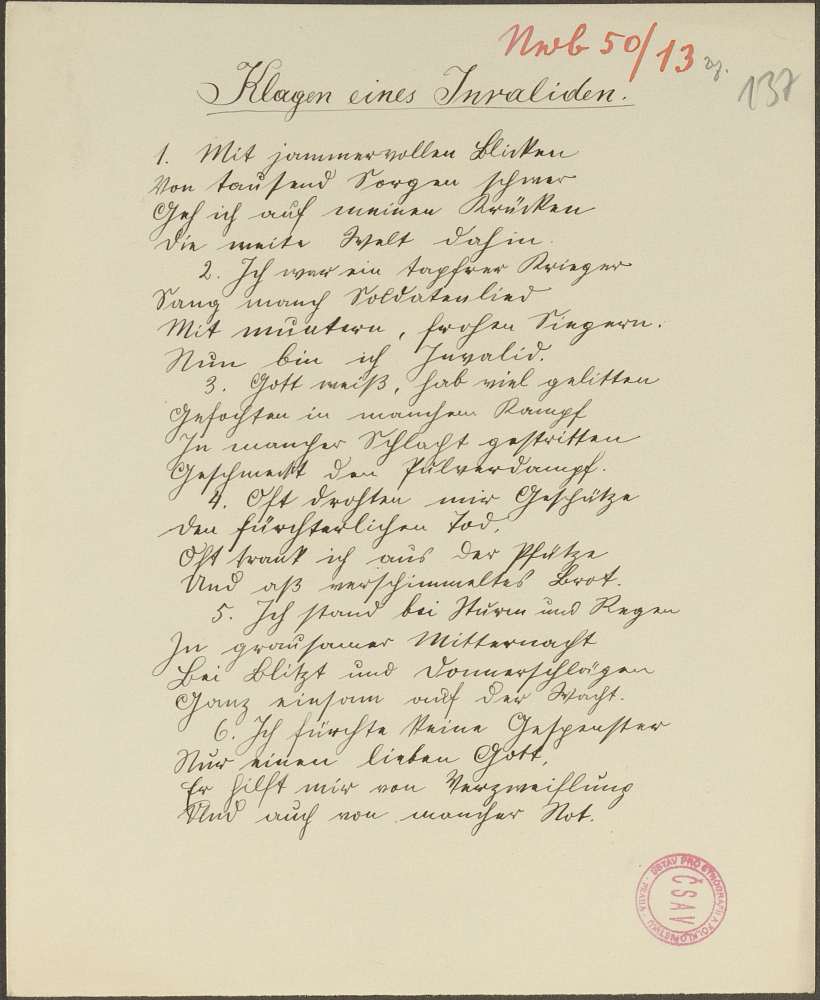 Nwb 50/13
137
Klagen eines Invaliden.
1. Mit jammervollen Blicken
Von tausend Sorgen schwer
Geh ich auf meinen Krücken
Die weite Welt dahin.
2. Ich war ein tapfrer Krieger
Sang manch Soldatenlied
Mit muntern, frohen Siegern.
Nun bin ich Invalid.
3. Gott weiß, hab viel gelitten
Gefochten in manchem Kampf
In mancher Schlacht gestritten
Geschmeckt den Pulverdampf.
4. Oft drohten mir Geschütze
Den fürchterlichen Tod,
Oft trank ich aus der Pfütze
Und aß verschimmeltes Brot.
5. Ich stand bei Sturm und Regen
In grausamer Mitternacht
Bei Blitzt und Donnerschlägen
Ganz einsam auf der Wacht.
6. Ich fürchte keine Gespenster
Nur einen lieben Gott,
Er hilft mir von Verzweiflung
Und auch von mancher Not.
ÚSTAV PRO ETNOGRAFII A FOLKLORISTIKU · PRAHA ·
ČSAV